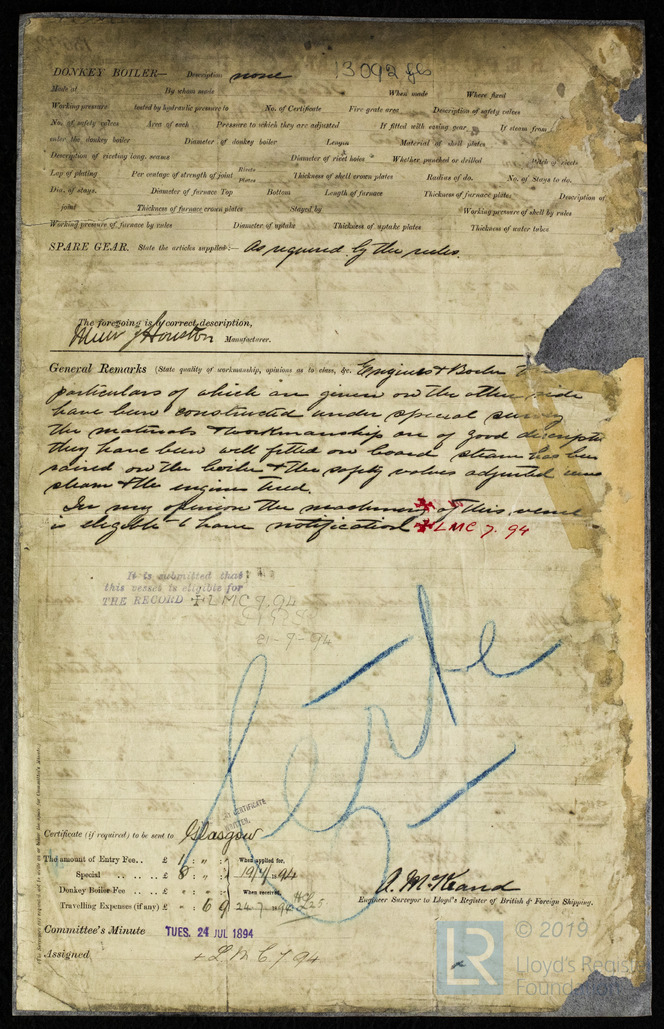 DONKEY BOILER— Description none 13092 gls
Made at By whom made When made Where fixed
Working pressure tested by hydraulic pressure to No. of Certificate Fire grate area Description of safety valves
No. of safety valves Area of each Pressure to which they are adjusted If fitted with easing gear If steam from
enter the donkey boiler Diameter of donkey boiler Length Material of shell plates
Description of riveting long. seams Diameter of rivet holes Whether punched or drilled Pitch of rivets
Lap of plating Per centage of strength of joint Rivets Plates Thickness of shell crown plates Radius of do. No. of Stays to do.
Dia. of stays. Diameter of furnace Top Bottom Length of furnace Thickness of furnace plates Description of
joint Thickness of furnace crown plates Stayed by Working pressure of shell by rules
Working pressure of furnace by rules Diameter of uptake Thickness of uptake plates Thickness of water tubes
SPARE GEAR. State the articles supplied:— As required by the rules.
The foregoing is a correct description,
Muir & Houston Manufacturer.
General Remarks (State quality of workmanship, opinions as to class, &c. Engines & Boiler
particulars of which are given on the other side
have been constructed under special survey
the materials & workmanship are of good descripti
they have been well fitted on board steam has been
raised on the boiler & the safety valves adjusted
steam & the engines tried.
In my opinion the machinery of this vessel
is eligible to have notification ✠LMC 7.94
It is submitted that
this vessel is eligible for
THE RECORD + LMC 7.94
21-9-94
CERTIFICATE WRITTEN.
Certificate (if required) to be sent to Glasgow
The amount of Entry Fee.. .. £ 1 : " : " When applied for,
Special .. .. .. £ 8 : " : " 19/7/1894
Donkey Boiler Fee .. .. £ " : " : " When received,
Travelling Expenses (if any) £ " : 6 : 9 24.7.1894
A. McKeand
Engineer Surveyor to Lloyd's Register of British & Foreign Shipping.
Committee's Minute TUES. 24 JUL 1894
Assigned + L M C 7.94
LR © 2019
Lloyd's Register
Foundation